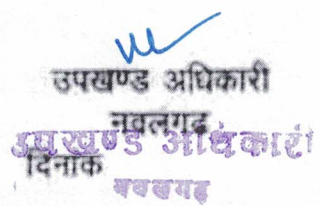 उपखण्ड अधिकारी
नवलगढ़
उपखण्ड अधिकारी
दिनांक
नवलगढ़